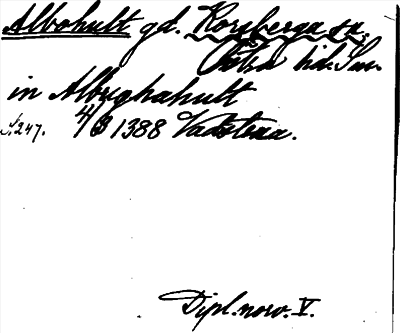 Albohult gd. Korsberga sn.
Östra hd. Sm.
in Albughahult
s. 247. 4/8 1388 Vadstena.
Dipl. norv. V.